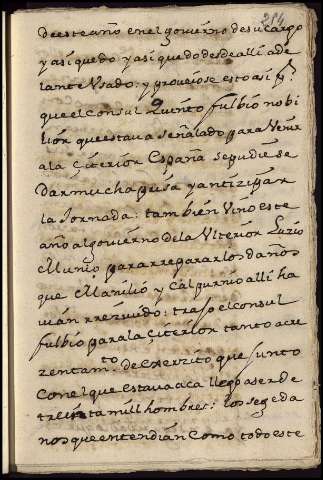 254
deesteaño enel goviérno desucargo
yasi quedo y así quedo desde allí ade
lante Usado: y proveiose esto así pª.
que el consul Quinto fulbio nobi
lior que estava señalado para Venir
ala Çiterior España sepudiese
dar mucha priesa y antizipar
la Jornada: tambien Vino este
año algoviérno dela Ulterior Luzio
Munio para rreparar los daños
que Manilio y Calpurnio alli ha
vian rrezivido: traso el consul
fulbio para la Çiterior tanto acre
zentam.to de exerzito que junto
con el que estava aca llego aser de
treinta mill hombres: los segeda
nos que entendian como todo este